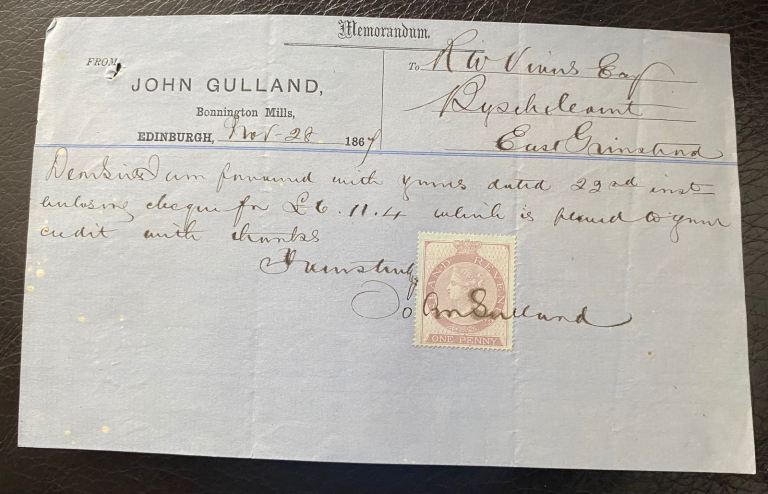 Memorandum.
FROM
To R W Vivers Esq
JOHN GULLAND,
Bonnington Mills,
East Grinstead
EDINBURGH, Nov 28 1867
Dear Sir I am favoured with yours dated 22nd inst
enclosing cheque for £6.11.4 which is passed to your
credit with thanks
Yours truly
John Gulland
AND REVENUE
ONE PENNY